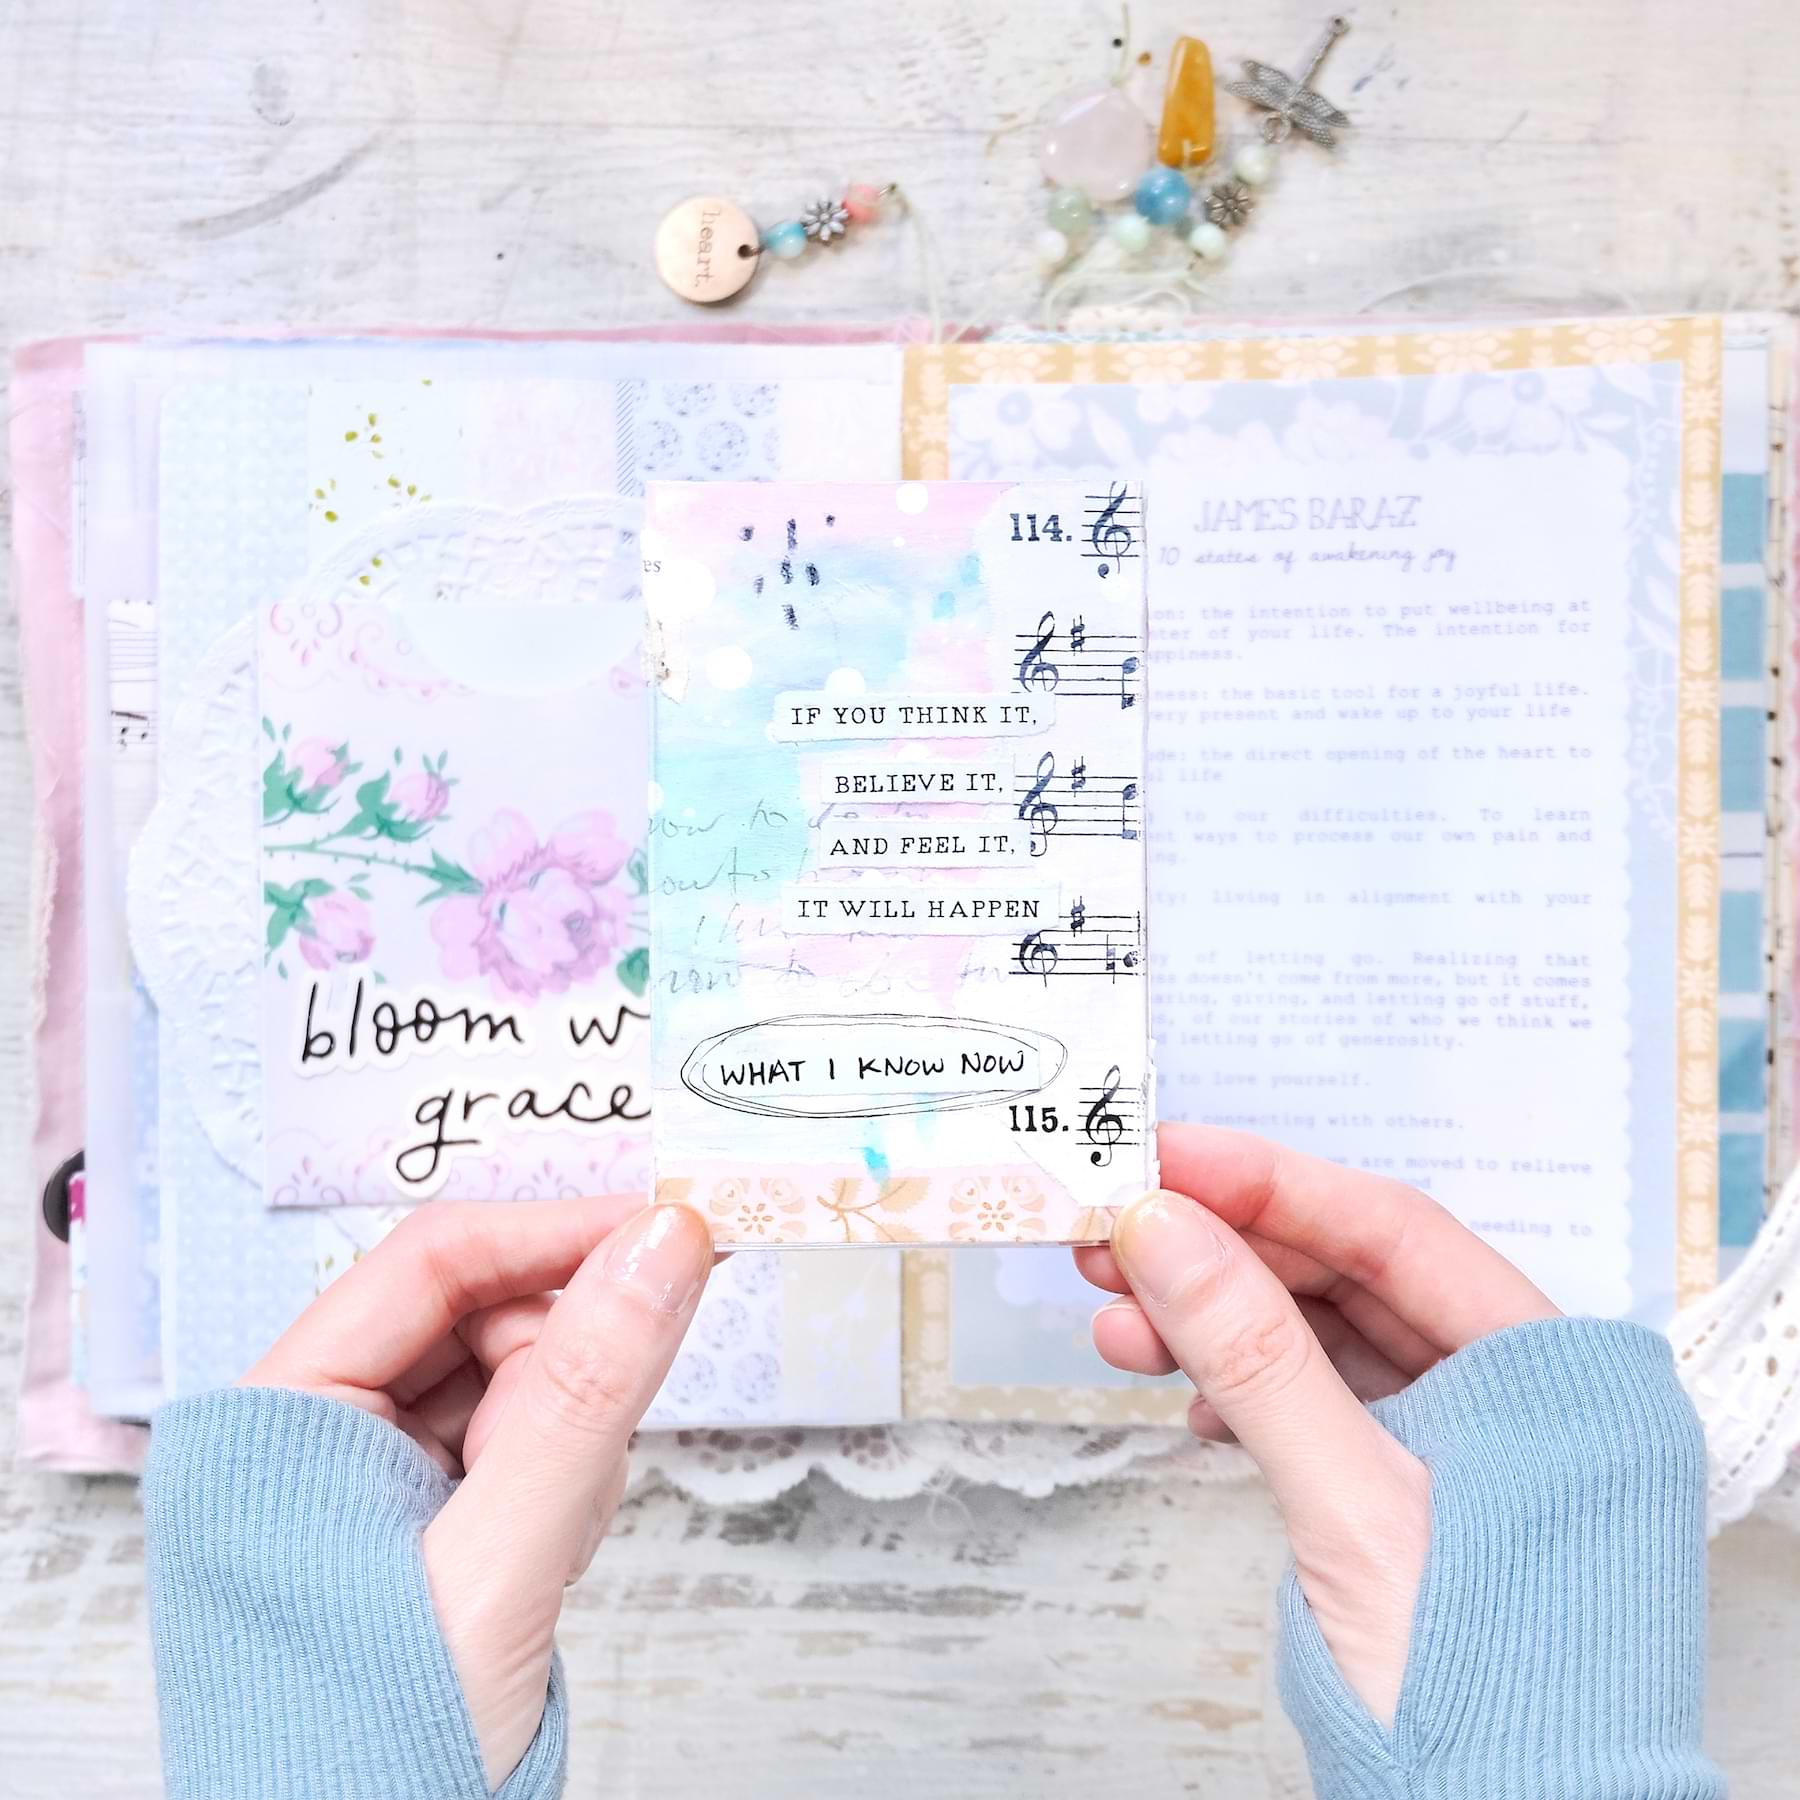 heart.
114.
es
IF YOU THINK IT,
BELIEVE IT,
AND FEEL IT,
IT WILL HAPPEN
WHAT I KNOW NOW
115.
bloom
grace
JAMES BARAZ
10 states of awakening joy
the intention to put wellbeing at
of your life. The intention for
the basic tool for a joyful life.
present and wake up to your life
the direct opening of the heart to
life
to our difficulties. To learn
ways to process our own pain and
living in alignment with your
of letting go. Realizing that
doesn't come from more, but it comes
giving, and letting go of stuff,
of our stories of who we think we
letting go of generosity.
to love yourself.
of connecting with others.
we are moved to relieve
needing to